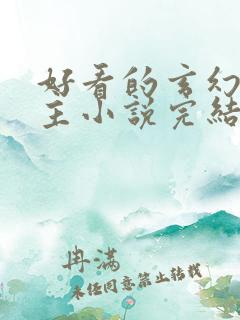 好看的玄幻
主小说完结
冉满
未经同意禁止转载